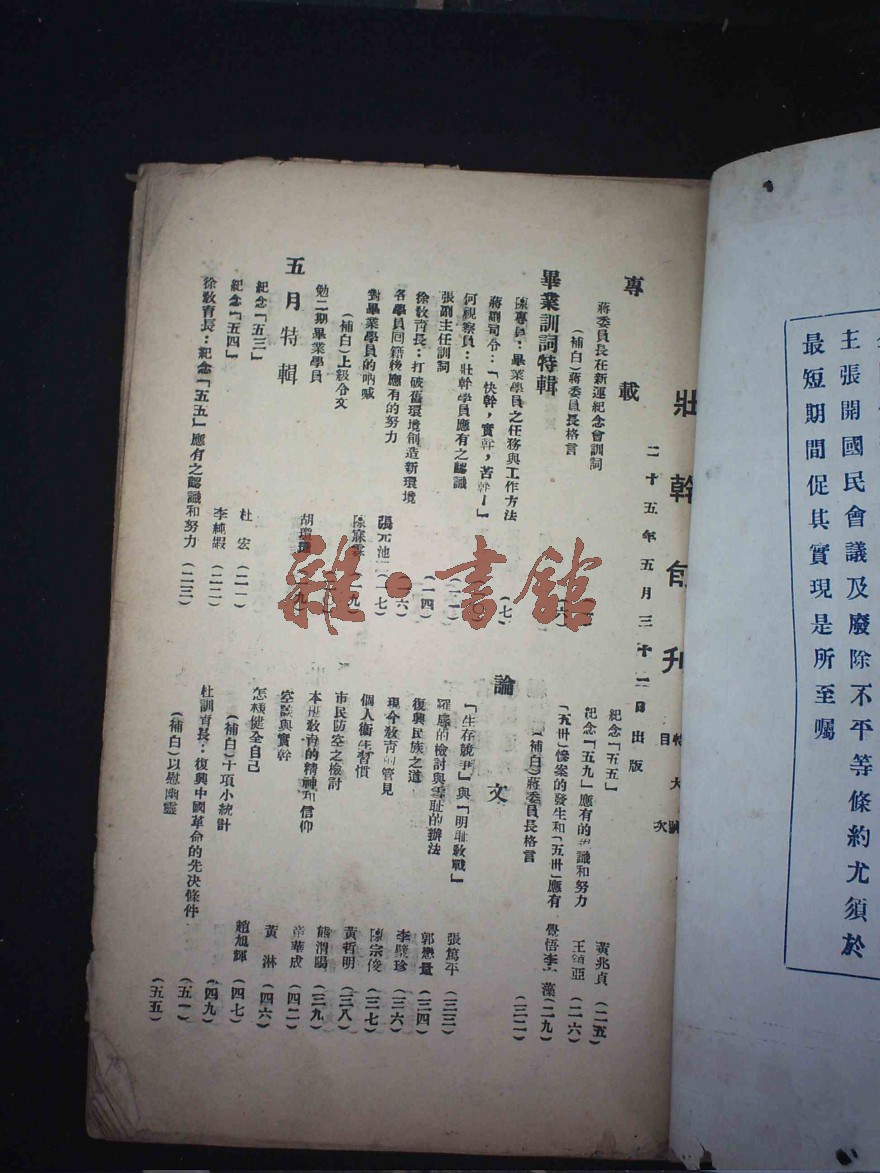 主張開國民會議及廢除不平等條約尤須於
最短期間促其實現是所至囑
壯幹旬刊
特大號
目次
二十五年五月三十一日出版
專載
蔣委員長在新運紀念會訓詞
(補白)蔣委員長格言
畢業訓詞特輯
陳專員:畢業學員之任務與工作方法 (七)
蔣副司令:「快幹,實幹,苦幹!」
何視察員:壯幹學員應有之認識
張副主任訓詞 (一四)
徐教育長:打破舊環境創造新環境
各學員回籍後應有的努力 張元池
對畢業學員的吶喊
(補白)上級令文
勉二期畢業學員
五月特輯
紀念「五三」 杜宏 (二一)
紀念「五四」 李純嘏 (二二)
徐教育長:紀念「五五」應有之認識和努力 (二三)
紀念「五五」 黃兆貞 (二五)
紀念「五九」應有的認識和努力 (二六)
「五卅」慘案的發生和「五卅」應有覺悟 (二九)
(補白)蔣委員長格言 (三二)
論文
「生存競爭」與「明恥教戰」 張篤平 (三三)
羅廉的檢討與雪恥的辦法 郭懋量 (三四)
復興民族之道 李燮珍 (三六)
現今教育的管見 陳宗俊 (三七)
個人衛生習慣 黃哲明 (三八)
市民防空之檢討 熊渭陽 (三九)
本班教育的精神和信仰 章華成 (四二)
空談與實幹 黃淋 (四六)
怎樣健全自己 趙旭輝 (四七)
(補白)十項小統計 (四九)
杜訓育長:復興中國革命的先決條件 (五一)
(補白)以慰幽靈 (五五)
雜·書館